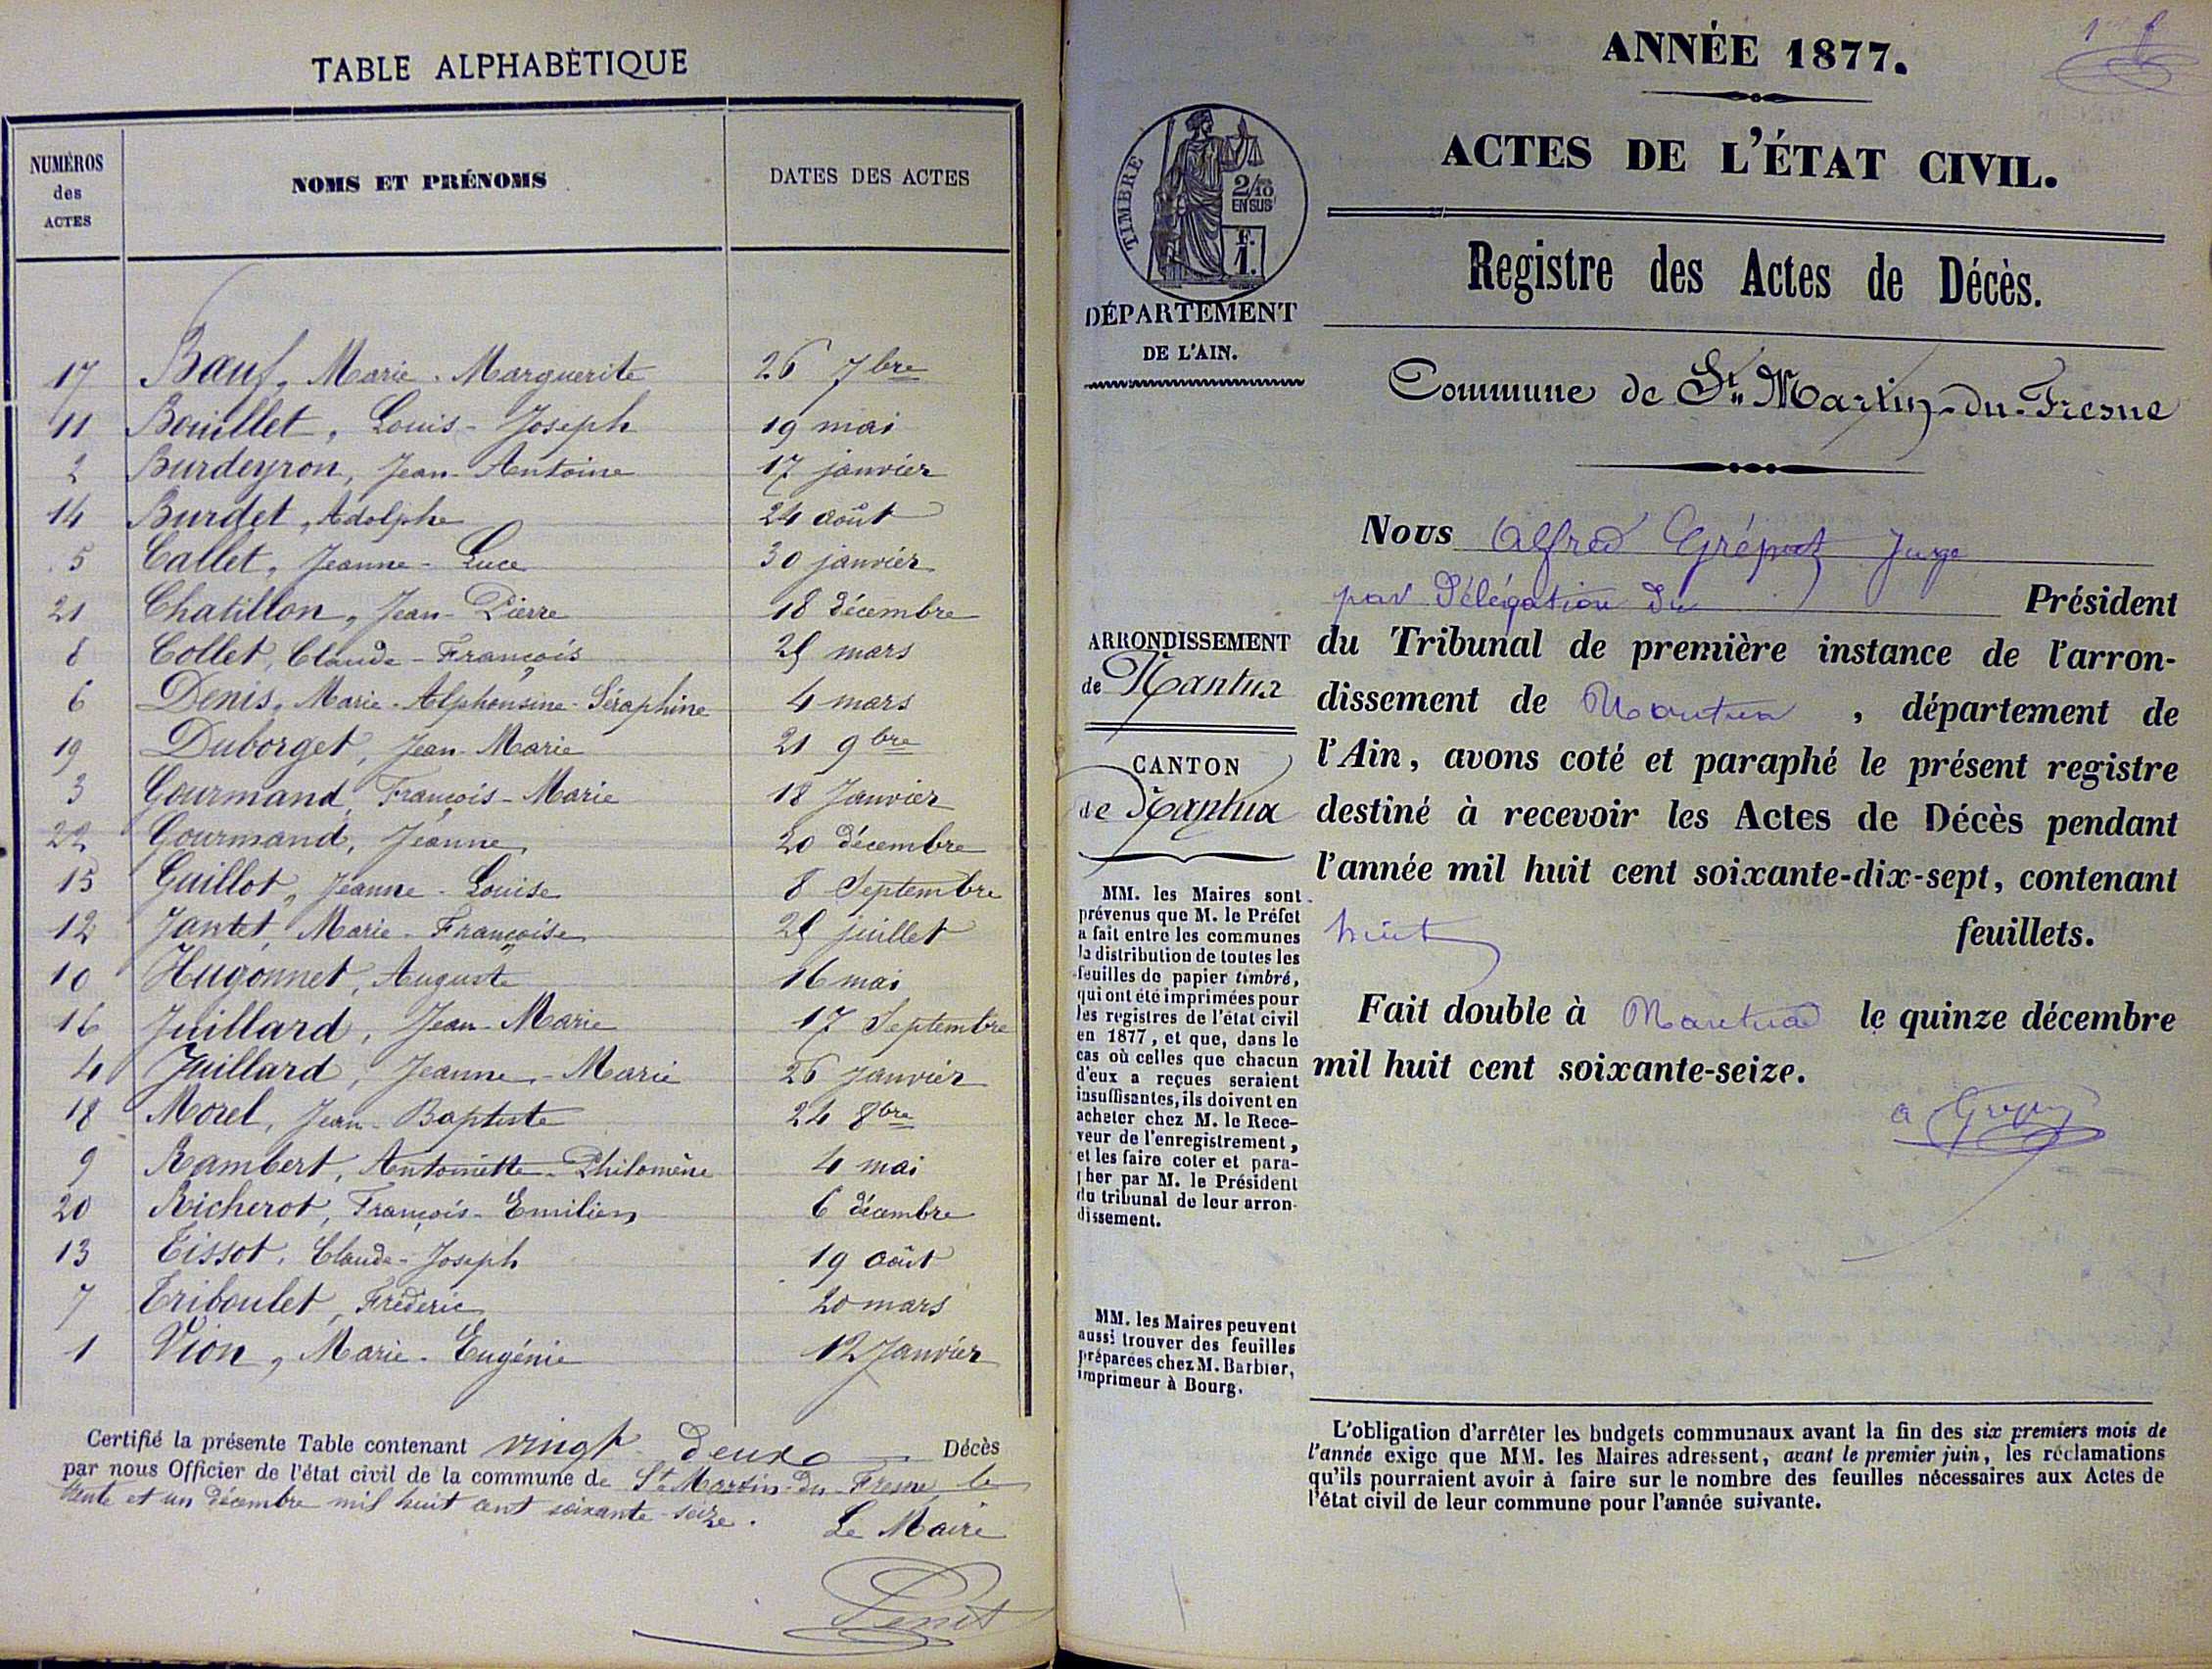 TABLE ALPHABÉTIQUE
NUMÉROS des ACTES
NOMS ET PRÉNOMS
DATES DES ACTES
17 Bœuf, Marie-Marguerite 26 7bre
11 Bouillet, Louis-Joseph 19 mai
2 Burdeyron, Jean-Antoine 17 janvier
14 Burdet, Adolphe 24 août
5 Callet, Jeanne-Luce 30 janvier
21 Chatillon, Jean-Pierre 18 décembre
8 Collet, Claude-François 25 mars
6 Denis, Marie-Alphonsine-Séraphine 4 mars
19 Duborget, Jean-Marie 21 9bre
3 Gourmand, François-Marie 18 Janvier
22 Gourmand, Jeanne 20 décembre
15 Guillot, Jeanne-Louise 8 Septembre
12 Jantet, Marie-Françoise 25 juillet
10 Hugonnet, Auguste 16 mai
16 Juillard, Jean-Marie 17 Septembre
4 Juillard, Jeanne-Marie 26 Janvier
18 Morel, Jean-Baptiste 24 8bre
9 Rambert, Antoinette-Philomène 4 mai
20 Richerot, François-Emilien 6 décembre
13 Tissot, Claude-Joseph 19 août
7 Triboulet, Fréderic 20 mars
1 Vion, Marie-Eugénie 12 Janvier
Certifié la présente Table contenant vingt deux Décès
par nous Officier de l'état civil de la commune de St Martin-du-Fresne, le
trente et un décembre mil huit cent soixante-seize.
Le Maire
ANNÉE 1877.
ACTES DE L'ÉTAT CIVIL.
TIMBRE
2/10 EN SUS
f. 1.
Registre des Actes de Décès.
DÉPARTEMENT
DE L'AIN.
Commune de St. Martin-du-Fresne
Nous Alfred Grépat Juge
par Délégation du Président
du Tribunal de première instance de l'arron-
dissement de Nantua, département de
l'Ain, avons coté et paraphé le présent registre
destiné à recevoir les Actes de Décès pendant
l'année mil huit cent soixante-dix-sept, contenant
huit feuillets.
Fait double à Nantua le quinze décembre
mil huit cent soixante-seize.
ARRONDISSEMENT
de Nantua
CANTON
de Nantua
MM. les Maires sont
prévenus que M. le Préfet
a fait entre les communes
la distribution de toutes les
feuilles de papier timbré,
qui ont été imprimées pour
les registres de l'état civil
en 1877, et que, dans le
cas où celles que chacun
d'eux a reçues seraient
insuffisantes, ils doivent en
acheter chez M. le Rece-
veur de l'enregistrement,
et les faire coter et para-
pher par M. le Président
du tribunal de leur arron-
dissement.
MM. les Maires peuvent
aussi trouver des feuilles
préparées chez M. Barbier,
imprimeur à Bourg.
L'obligation d'arrêter les budgets communaux avant la fin des six premiers mois de
l'année exige que MM. les Maires adressent, avant le premier juin, les réclamations
qu'ils pourraient avoir à faire sur le nombre des feuilles nécessaires aux Actes de
l'état civil de leur commune pour l'année suivante.